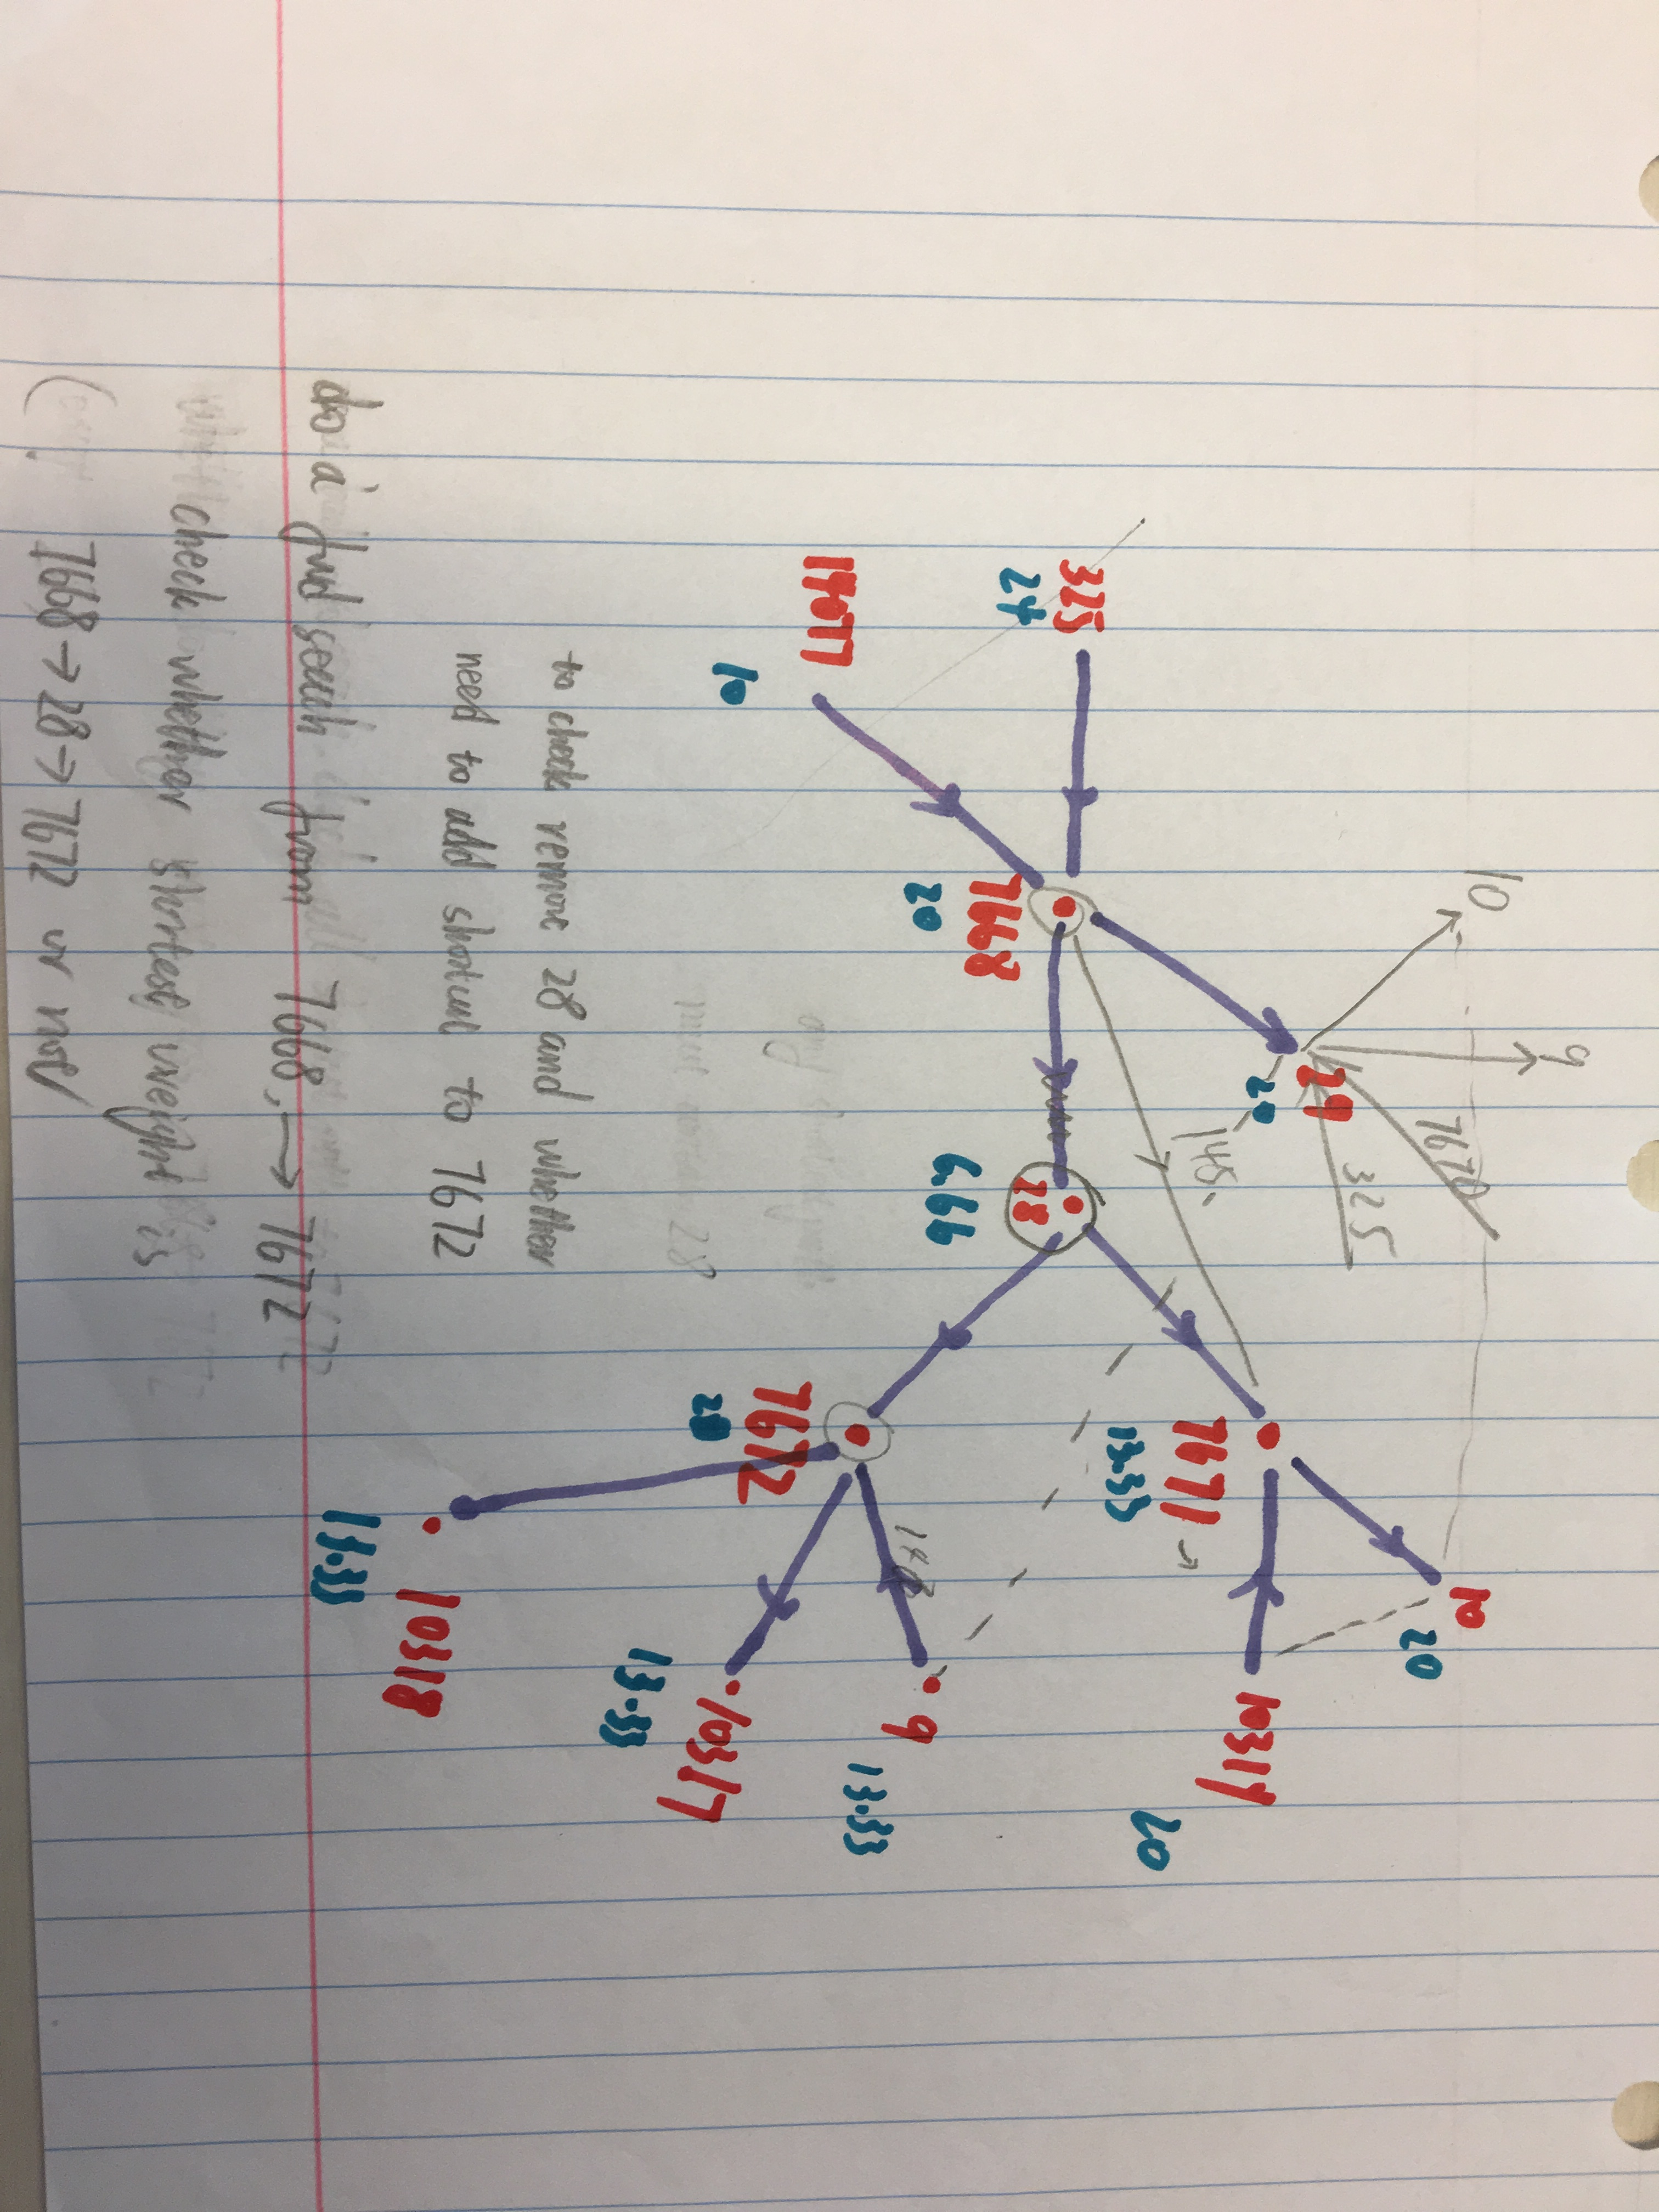 10
9
7670
325
145.
29
20
10
20
325
24
7668
20
28
6.66
7671
13.33
10314
20
14077
10
7672
20
140
9
13.33
10317
13.33
10318
13.33
to check remove 28 and whether
need to add shortcut to 7672
do a fwd search from 7668, → 7672
check whether shortest weight is
7668 → 28 → 7672 or not